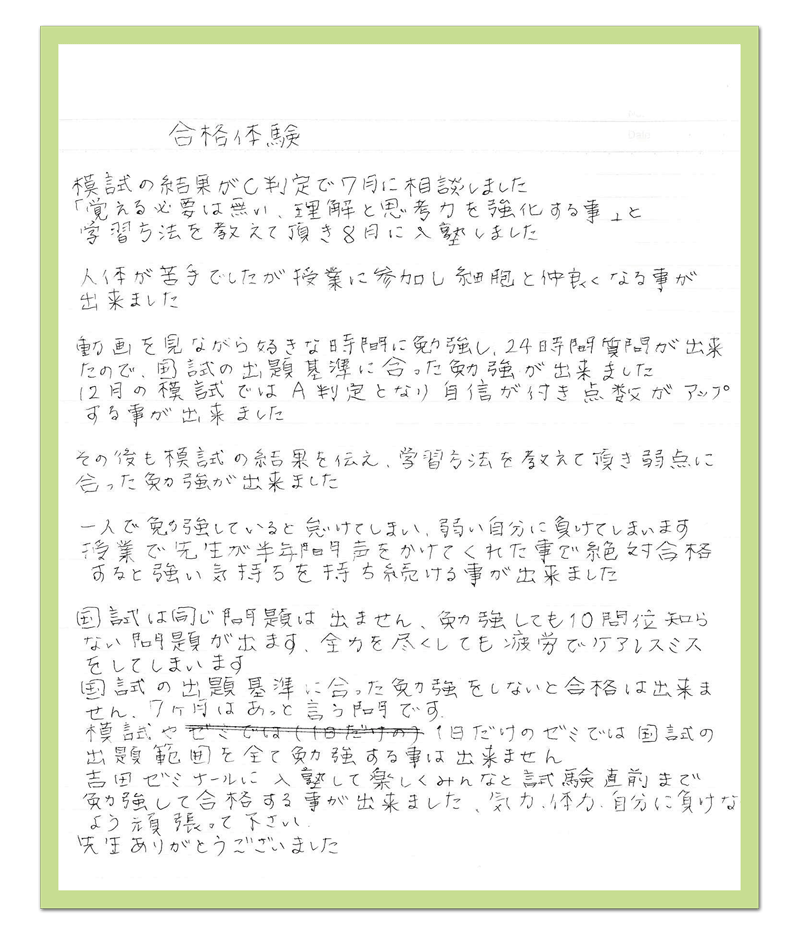 合格体験
模試の結果がC判定で7月に相談しました
「覚える必要は無い、理解と思考力を強化する事」と
学習方法を教えて頂き8月に入塾しました
人体が苦手でしたが授業に参加し細胞と仲良くなる事が
出来ました
動画を見ながら好きな時間に勉強し、24時間質問が出来
たので、国試の出題基準に合った勉強が出来ました
12月の模試ではA判定となり自信が付き点数がアップ
する事が出来ました
その後も模試の結果を伝え、学習方法を教えて頂き弱点に
合った勉強が出来ました
一人で勉強していると怠けてしまい、弱い自分に負けてしまいます
授業で先生が半年間声をかけてくれた事で絶対合格
すると強い気持ちを持ち続ける事が出来ました
国試は同じ問題は出ません、勉強しても10問位知ら
ない問題が出ます、全力を尽くしても疲労でケアレスミス
をしてしまいます
国試の出題基準に合った勉強をしないと合格は出来ま
せん、7ヶ月はあっと言う間です.
模試や ゼミでは(1日だけの) 1日だけのゼミでは国試の
出題範囲を全て勉強する事は出来ません
吉田ゼミナールに入塾して楽しくみんなと試験直前まで
勉強して合格する事が出来ました、気力.体力.自分に負けな
よう頑張って下さい.
先生ありがとうございました